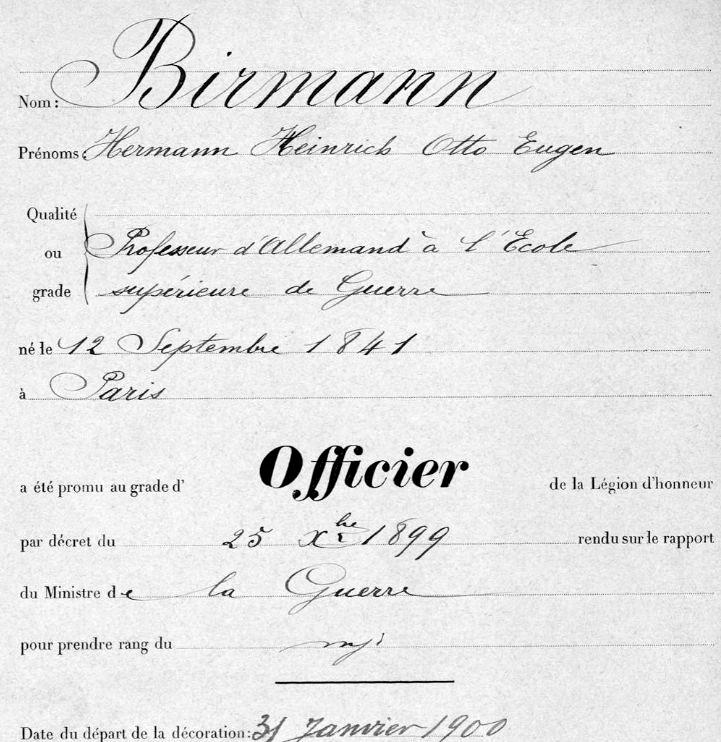 Nom: Birmann
Prénoms: Hermann Heinrich Otto Eugen
Qualité
ou Professeur d'Allemand à l'École
grade supérieure de Guerre
né le 12 Septembre 1841
à Paris
a été promu au grade d' Officier de la Légion d'honneur
par décret du 25 Xbre 1899 rendu sur le rapport
du Ministre de la Guerre
pour prendre rang du
Date du départ de la décoration: 31 Janvier 1900